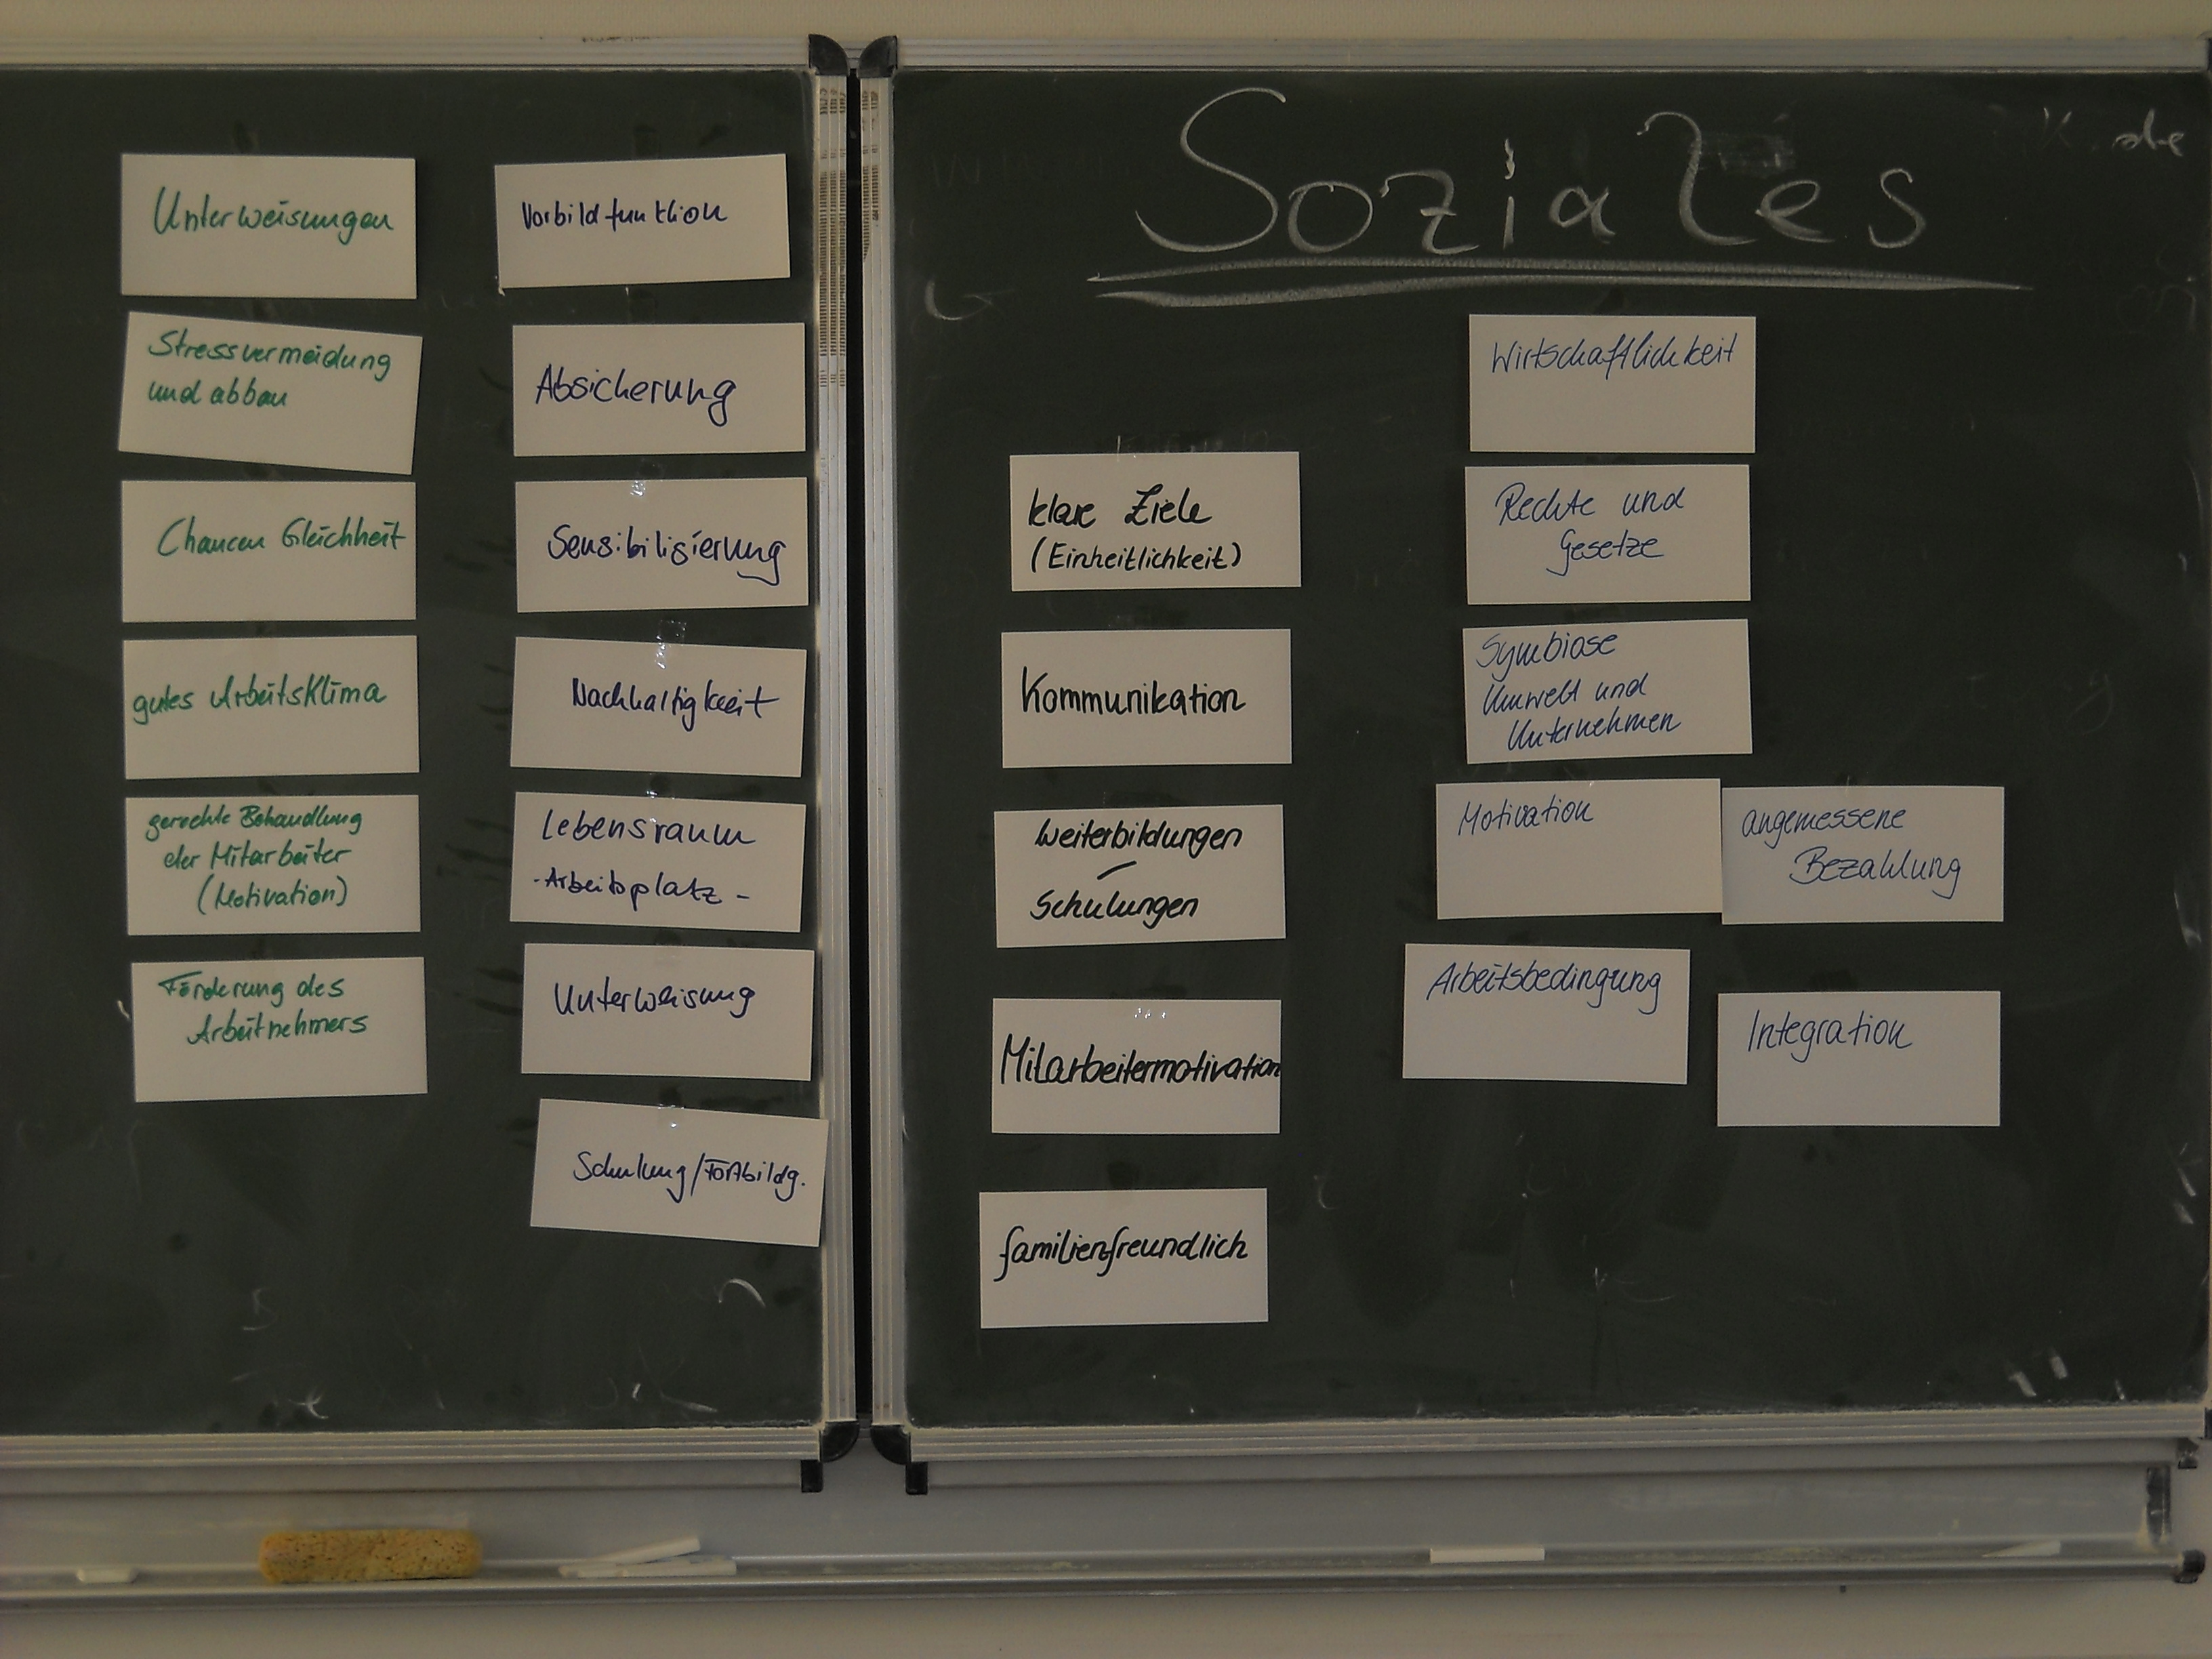 Unterweisungen
Stressvermeidung
und abbau
Chancen Gleichheit
gutes Arbeitsklima
gerechte Behandlung
der Mitarbeiter
(Motivation)
Förderung des
Arbeitnehmers
Vorbildfunktion
Absicherung
Sensibilisierung
Nachhaltigkeit
Lebensraum
-Arbeitsplatz-
Unterweisung
Schulung/Fortbildg.
Soziales
klare Ziele
(Einheitlichkeit)
Kommunikation
Weiterbildungen
/
Schulungen
Mitarbeitermotivation
familienfreundlich
Wirtschaftlichkeit
Rechte und
Gesetze
Symbiose
Umwelt und
Unternehmen
Motivation
angemessene
Bezahlung
Arbeitsbedingung
Integration